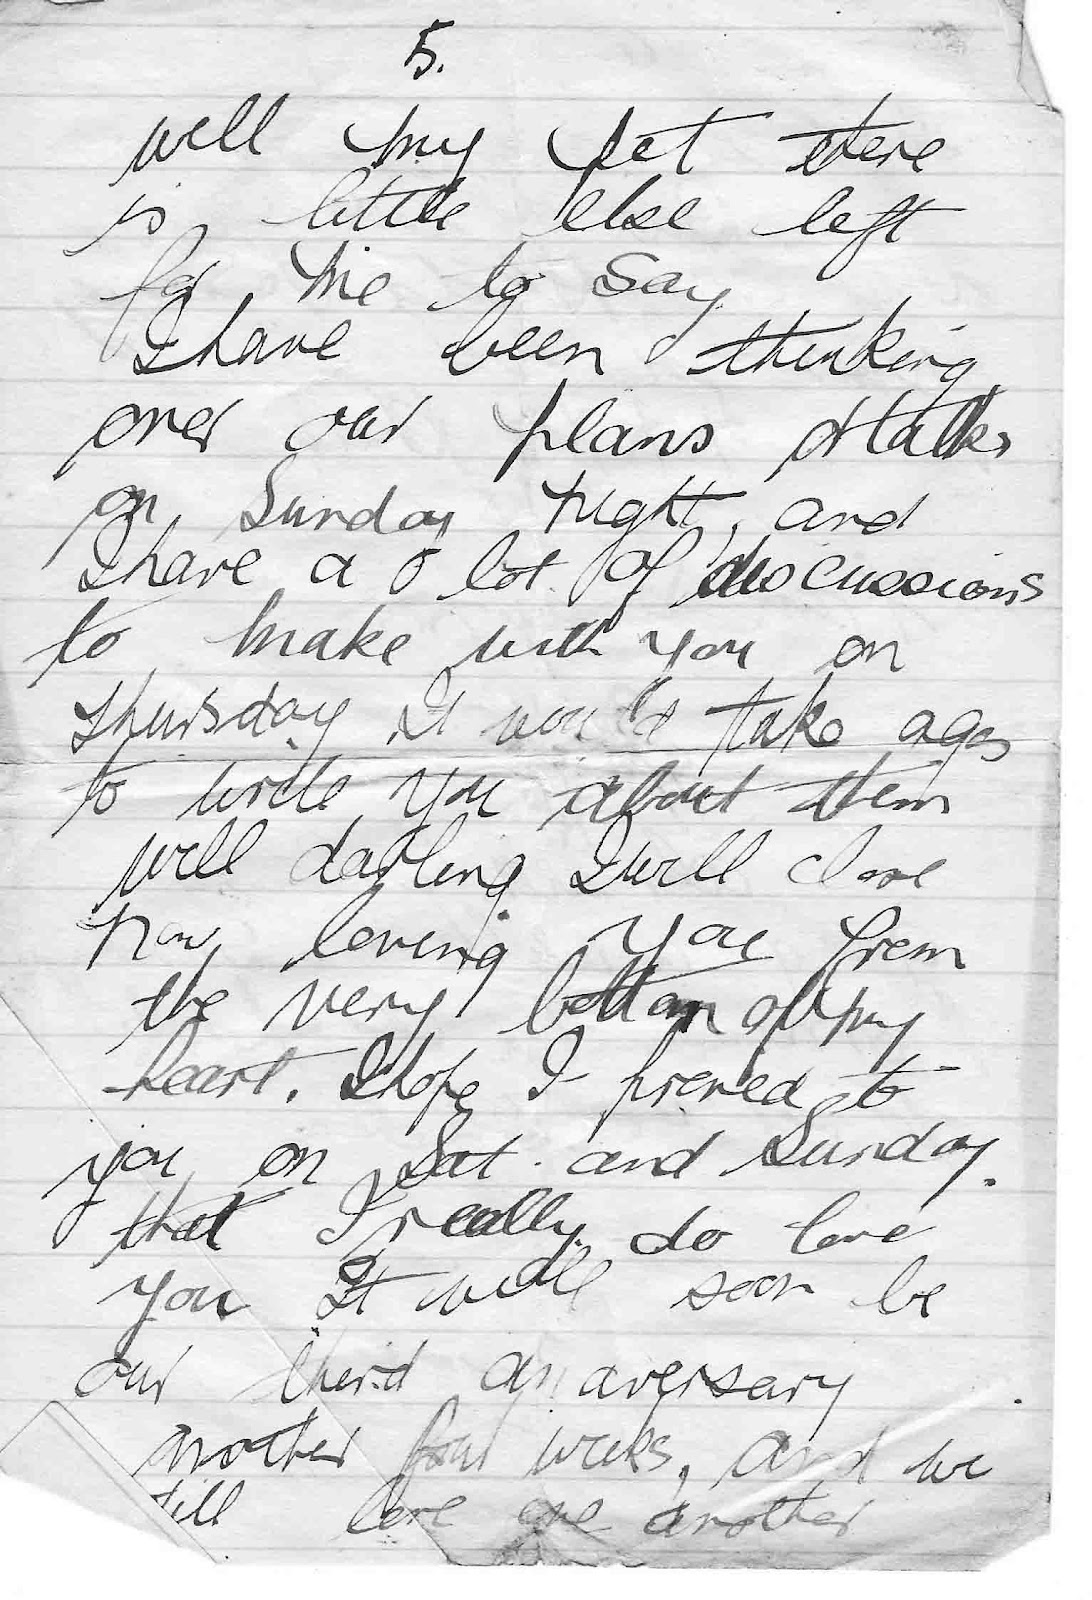 5.
well my pet there
is little else left
for me to say
I have been thinking
over our plans & talks
on Sunday night, and
I have a lot of discussions
to make with you on
thursday it would take ages
to write you about them
well darling I will close
now, loving you from
the very bottom of my
heart. I hope I proved to
you on Sat. and Sunday.
that I really do love
you It will soon be
our third anaversary
another four weeks, and we
still love one another